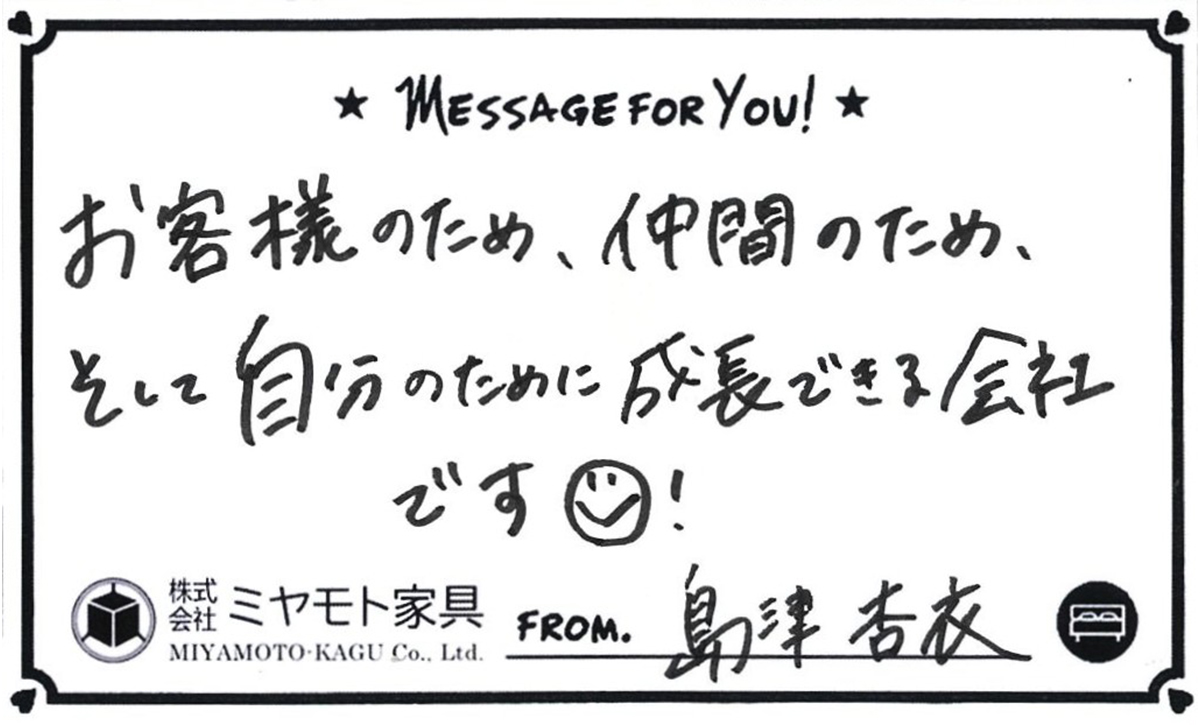 ★ MESSAGE FOR YOU! ★
お客様のため、仲間のため、
そして自分のために成長できる会社
です☺!
株式会社 ミヤモト家具
MIYAMOTO-KAGU Co., Ltd.
FROM. 島津 杏衣